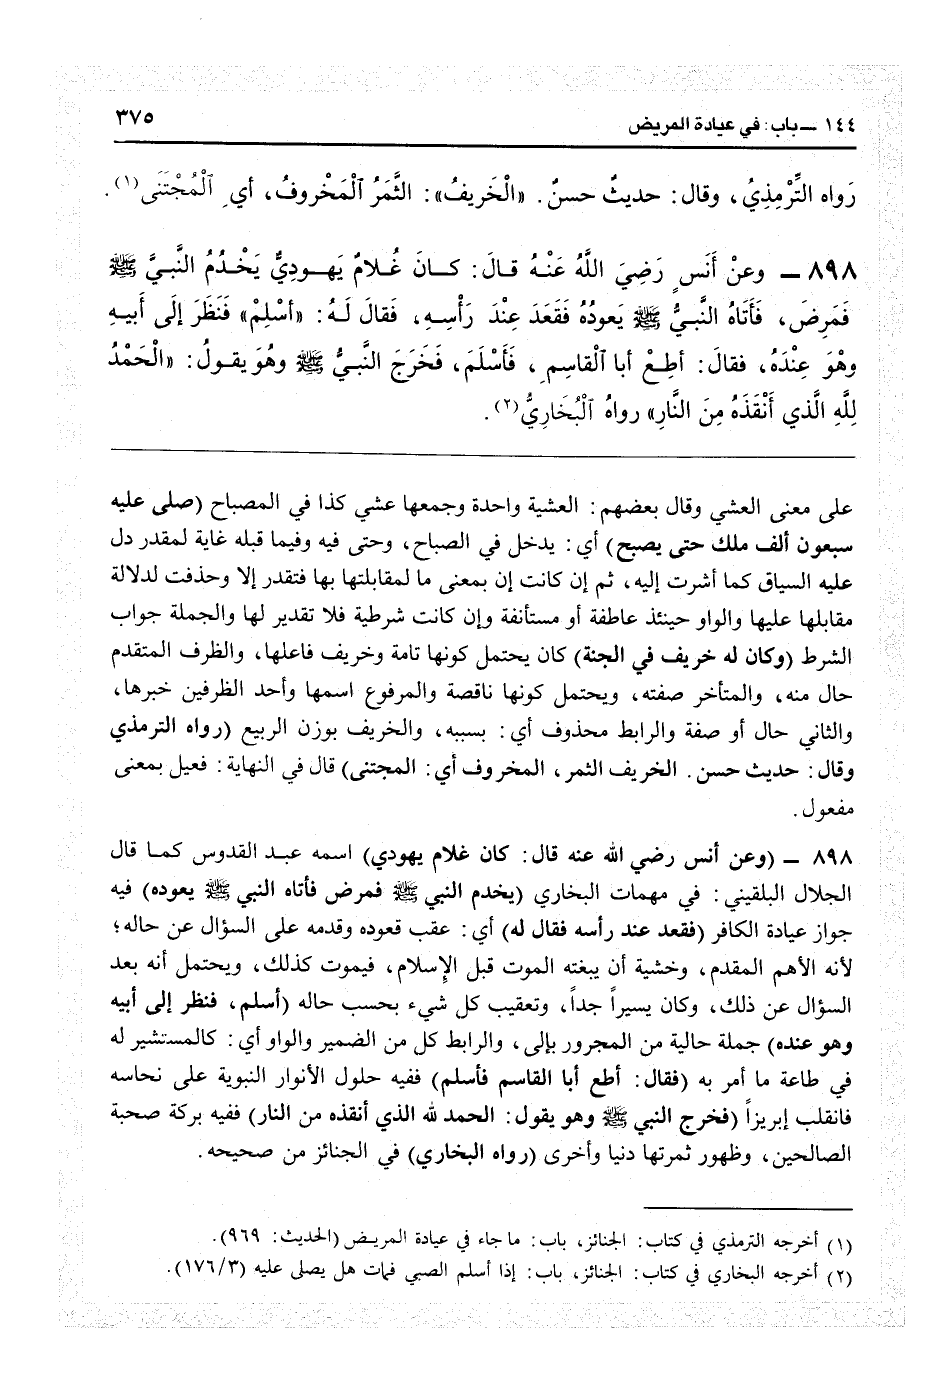 ١٤٤ ـ باب: في عيادة المريض
٣٧٥
رَواه التِّرْمِذِيُ، وقال: حديثٌ حسنٌ. «الْخَريفُ»: الثَّمَرُ ٱلْمَخْروفُ، أي ٱلْمُجْتَنَى(١).
٨٩٨ ـ وعنْ أَنَسٍ رَضِيَ اللَّهُ عَنْهُ قالَ: كانَ غُلامٌ يَهودِيٌّ يَخْدُمُ النَّبيَّ ﷺ
فَمَرِضَ، فَأَتَاهُ النَّبيُّ ﷺ يَعودُهُ فَقَعَدَ عِنْدَ رَأْسِهِ، فَقالَ لَهُ: «أَسْلِمْ» فَنَظَرَ إلَى أَبيهِ
وهْوَ عِنْدَهُ، فقالَ: أطِعْ أبا ٱلْقاسِمِ، فَأَسْلَمَ، فَخَرَجَ النَّبيُّ ﷺ وهُوَ يقولُ: «الْحَمْدُ
لِلَّهِ الَّذي أَنْقَذَهُ مِنَ النَّارِ» رواهُ ٱلْبُخَارِيُّ(٢).
على معنى العشي وقال بعضهم: العشية واحدة وجمعها عشي كذا في المصباح (صلى عليه
سبعون ألف ملك حتى يصبح) أي: يدخل في الصباح، وحتى فيه وفيما قبله غاية لمقدر دل
عليه السياق كما أشرت إليه، ثم إن كانت إن بمعنى ما لمقابلتها بها فتقدر إلا وحذفت لدلالة
مقابلها عليها والواو حينئذ عاطفة أو مستأنفة وإن كانت شرطية فلا تقدير لها والجملة جواب
الشرط (وكان له خريف في الجنة) كان يحتمل كونها تامة وخريف فاعلها، والظرف المتقدم
حال منه، والمتأخر صفته، ويحتمل كونها ناقصة والمرفوع اسمها وأحد الظرفين خبرها،
والثاني حال أو صفة والرابط محذوف أي: بسببه، والخريف بوزن الربيع (رواه الترمذي
وقال: حديث حسن. الخريف الثمر، المخروف أي: المجتنى) قال في النهاية: فعيل بمعنى
مفعول.
٨٩٨ ـ (وعن أنس رضي الله عنه قال: كان غلام يهودي) اسمه عبد القدوس كما قال
الجلال البلقيني: في مهمات البخاري (يخدم النبي ﷺ فمرض فأتاه النبي ﷺ يعوده) فيه
جواز عيادة الكافر (فقعد عند رأسه فقال له) أي: عقب قعوده وقدمه على السؤال عن حاله؛
لأنه الأهم المقدم، وخشية أن يبغته الموت قبل الإسلام، فيموت كذلك، ويحتمل أنه بعد
السؤال عن ذلك، وكان يسيراً جداً، وتعقيب كل شيء بحسب حاله (أسلم، فنظر إلى أبيه
وهو عنده) جملة حالية من المجرور بإلى، والرابط كل من الضمير والواو أي: كالمستشير له
في طاعة ما أمر به (فقال: أطع أبا القاسم فأسلم) ففيه حلول الأنوار النبوية على نحاسه
فانقلب إبريزاً (فخرج النبي ﷺ وهو يقول: الحمد لله الذي أنقذه من النار) ففيه بركة صحبة
الصالحين، وظهور ثمرتها دنيا وأخرى (رواه البخاري) في الجنائز من صحيحه.
(١) أخرجه الترمذي في كتاب: الجنائز، باب: ما جاء في عيادة المريض (الحديث: ٩٦٩).
(٢) أخرجه البخاري في كتاب: الجنائز، باب: إذا أسلم الصبي فمات هل يصلى عليه (١٧٦/٣).